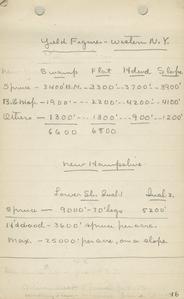 Yield Figures - Western N.Y.
Swamp Flat Hdwd Slope
Spruce - 3400 B.M. - 3300 - 3700 - 3900
B.&Map. - 1900 - 2200 - 4200 - 4100
Others - 1300 - 1300 - 900 - 1200
6600 6800
New Hampshire
Lower Sl. Qual. 1 Qual 2.
Spruce - 9000 - 70 logs 5200
Hdwood - 3600 spruce per acre
Max. - 25000 per acre, on a slope